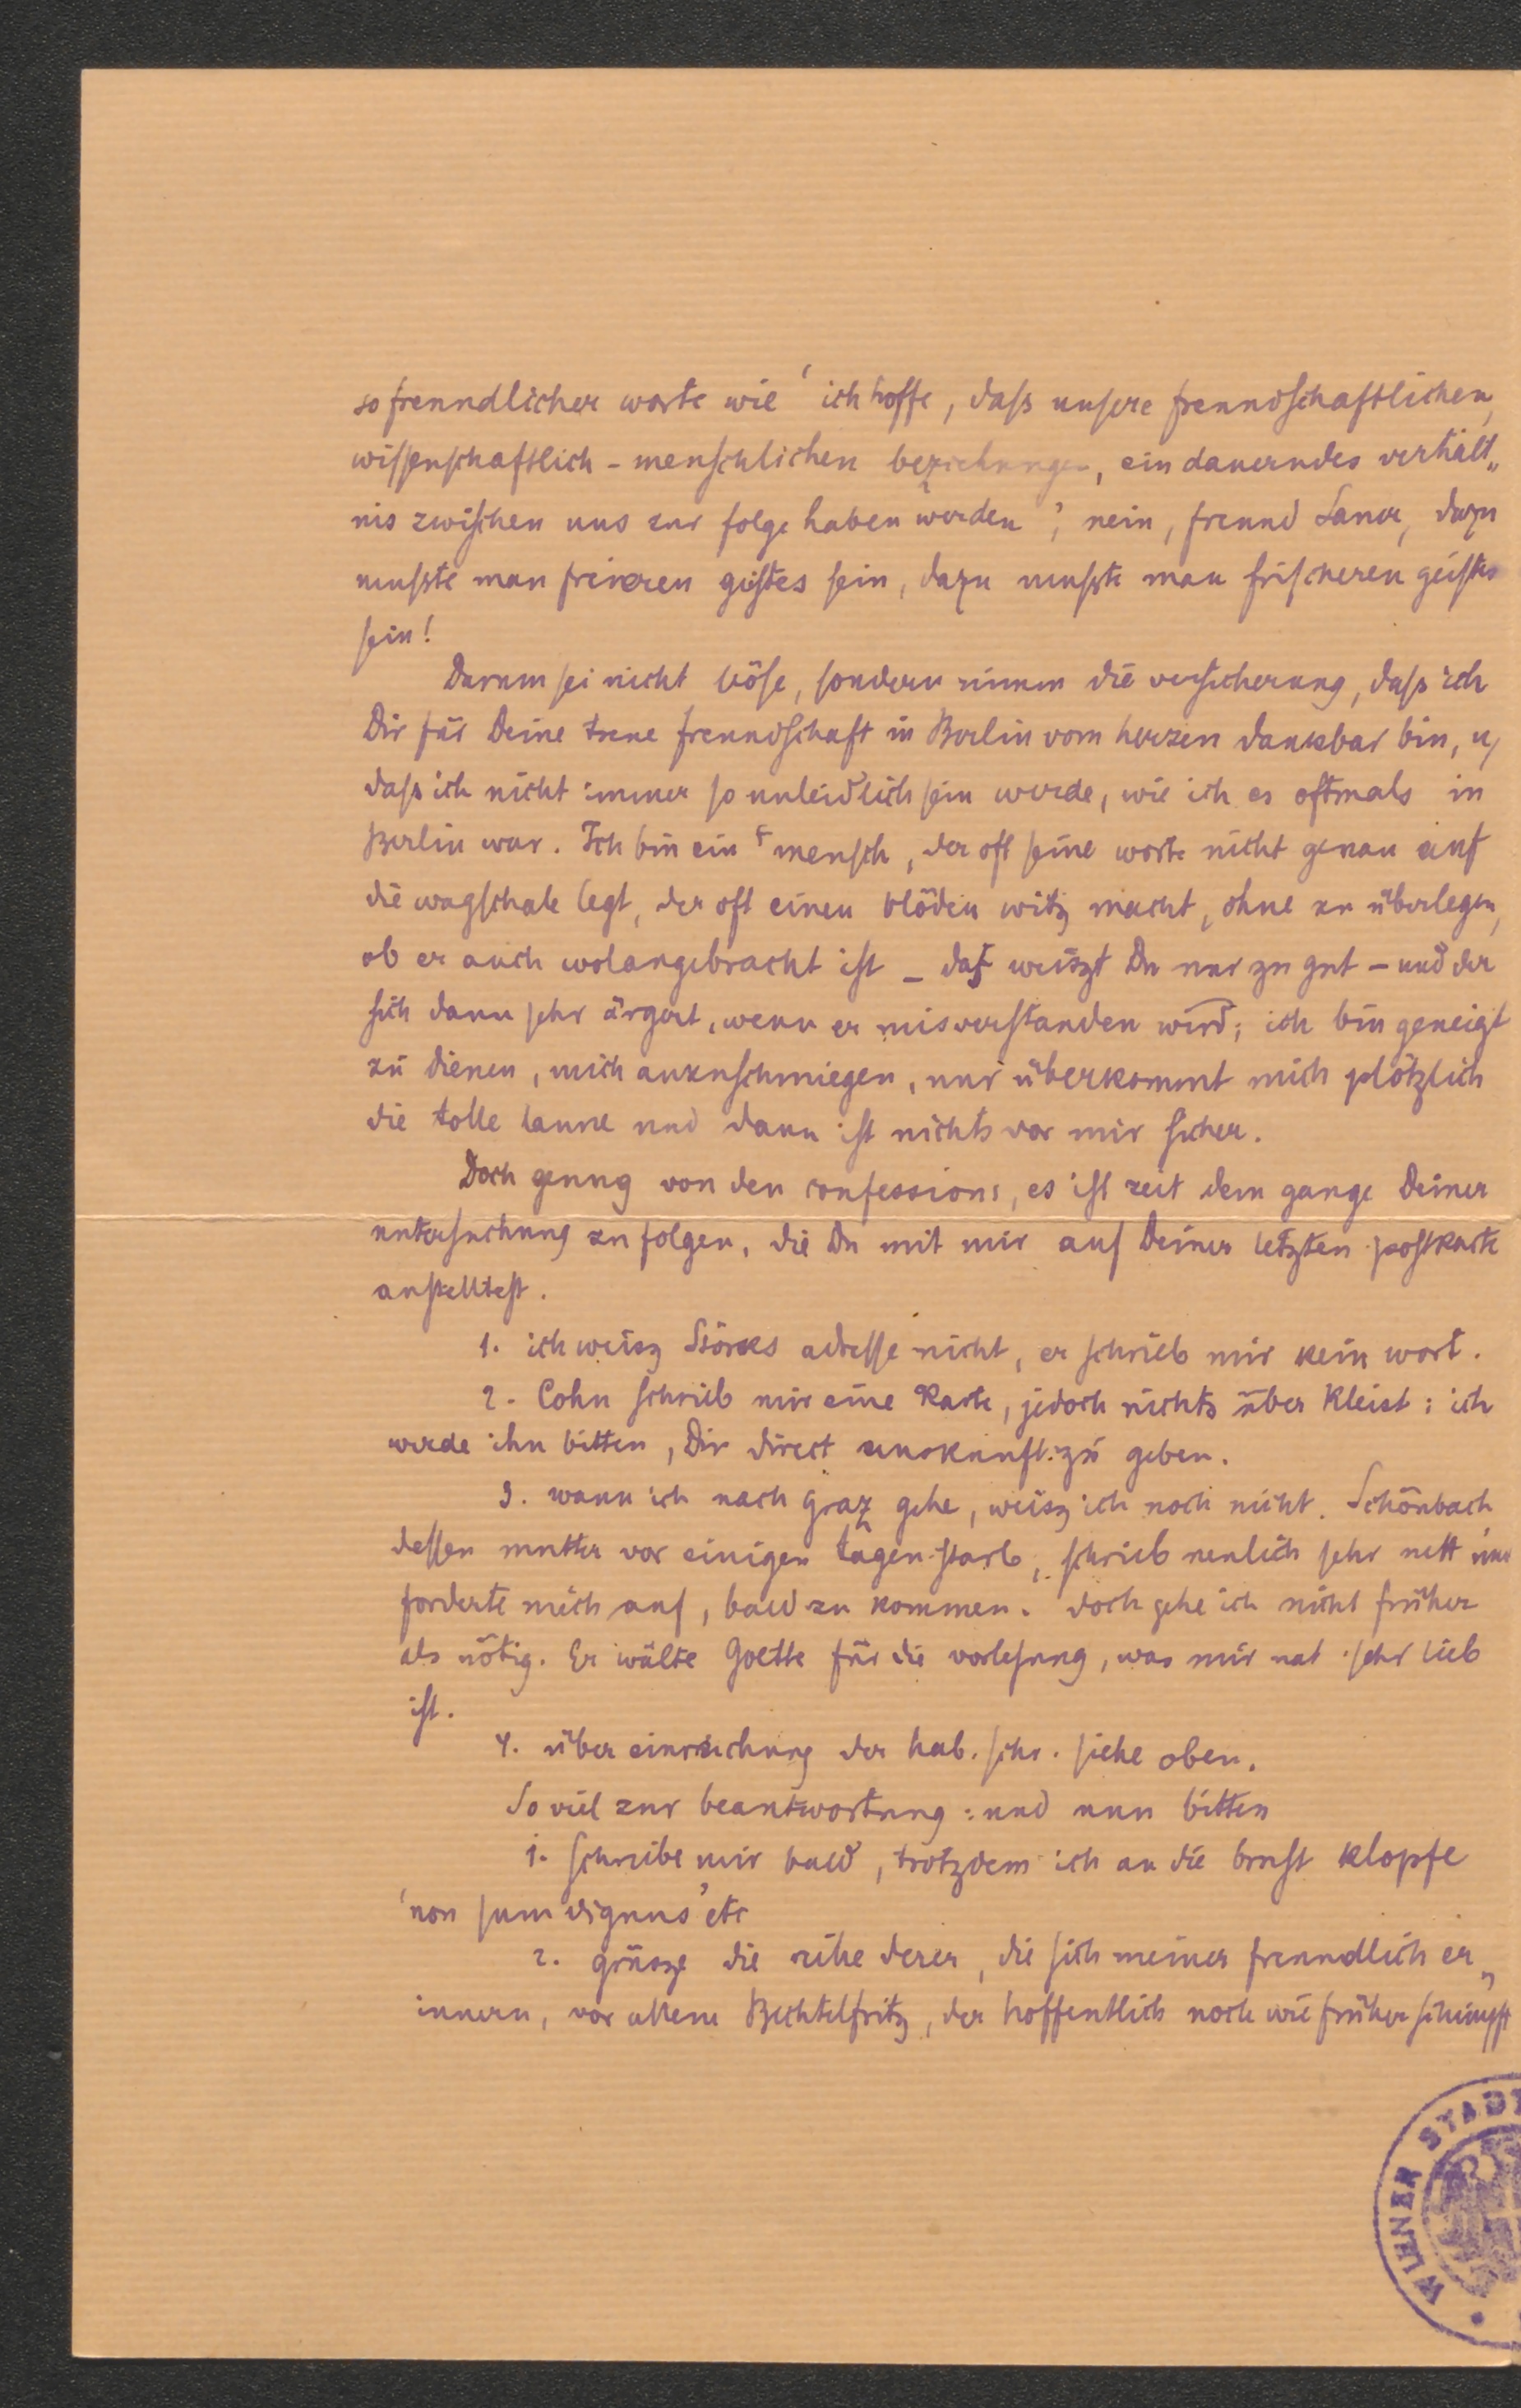 so freundlicher worte wie ‘ich hoffe, dass unsere freundschaftlichen,
wissenschaftlich-menschlichen beziehungen, ein dauerndes verhält„
nis zwischen uns zur folge haben werden’; nein, freund Sauer, dazu
musste man freieren geistes sein, dazu musste man frischeren geistes
sein!
Darum sei nicht böse, sondern nimm die versicherung, dass ich
Dir für Deine treue freundschaft in Berlin vom herzen dankbar bin, u,
dass ich nicht immer so unleidlich sein werde, wie ich es oftmals in
Berlin war. Ich bin ein mensch, der oft seine worte nicht genau auf
die wagschale legt, der oft einen blöden witz macht, ohne zu überlegen,
ob er auch wolangebracht ist – das weiszt Du nur zu gut – und der
sich dann sehr ärgert, wenn er misverstanden wird; ich bin geneigt
zu dienen, mich anzuschmiegen, nur überkommt mich plötzlich
die tolle laune und dann ist nichts vor mir sicher.
Doch genug von den confessions, es ist zeit dem gange Deiner
untersuchung zu folgen, die Du mit mir auf Deiner letzten postkarte
anstelltest.
1. ich weisz Störcks adresse nicht, er schrieb mir kein wort.
2. Cohn schrieb mir eine Karte, jedoch nichts über Kleist; ich
werde ihn bitten, Dir direct auskunft zu geben.
3. wann ich nach Graz gehe, weisz ich noch nicht. Schönbach,
dessen mutter vor einigen tagen starb, schrieb neulich sehr nett und
forderte mich auf, bald zu kommen. doch gehe ich nicht früher
als nötig. Er wälte Goethe für die vorlesung, was mir nat sehr lieb
ist.
4. über einreichung der hab. schr. siehe oben.
So viel zur beantwortung: und nun bitten
1. schreibe mir bald, trotzdem ich an die brust klopfe
‘non sum dignus’ etc
2. grüsze die reihe derer, die sich meiner freundlich er„
innern, vor allem Bechtelfritz, der hoffentlich noch wie früher schimpft
WIENER STADT